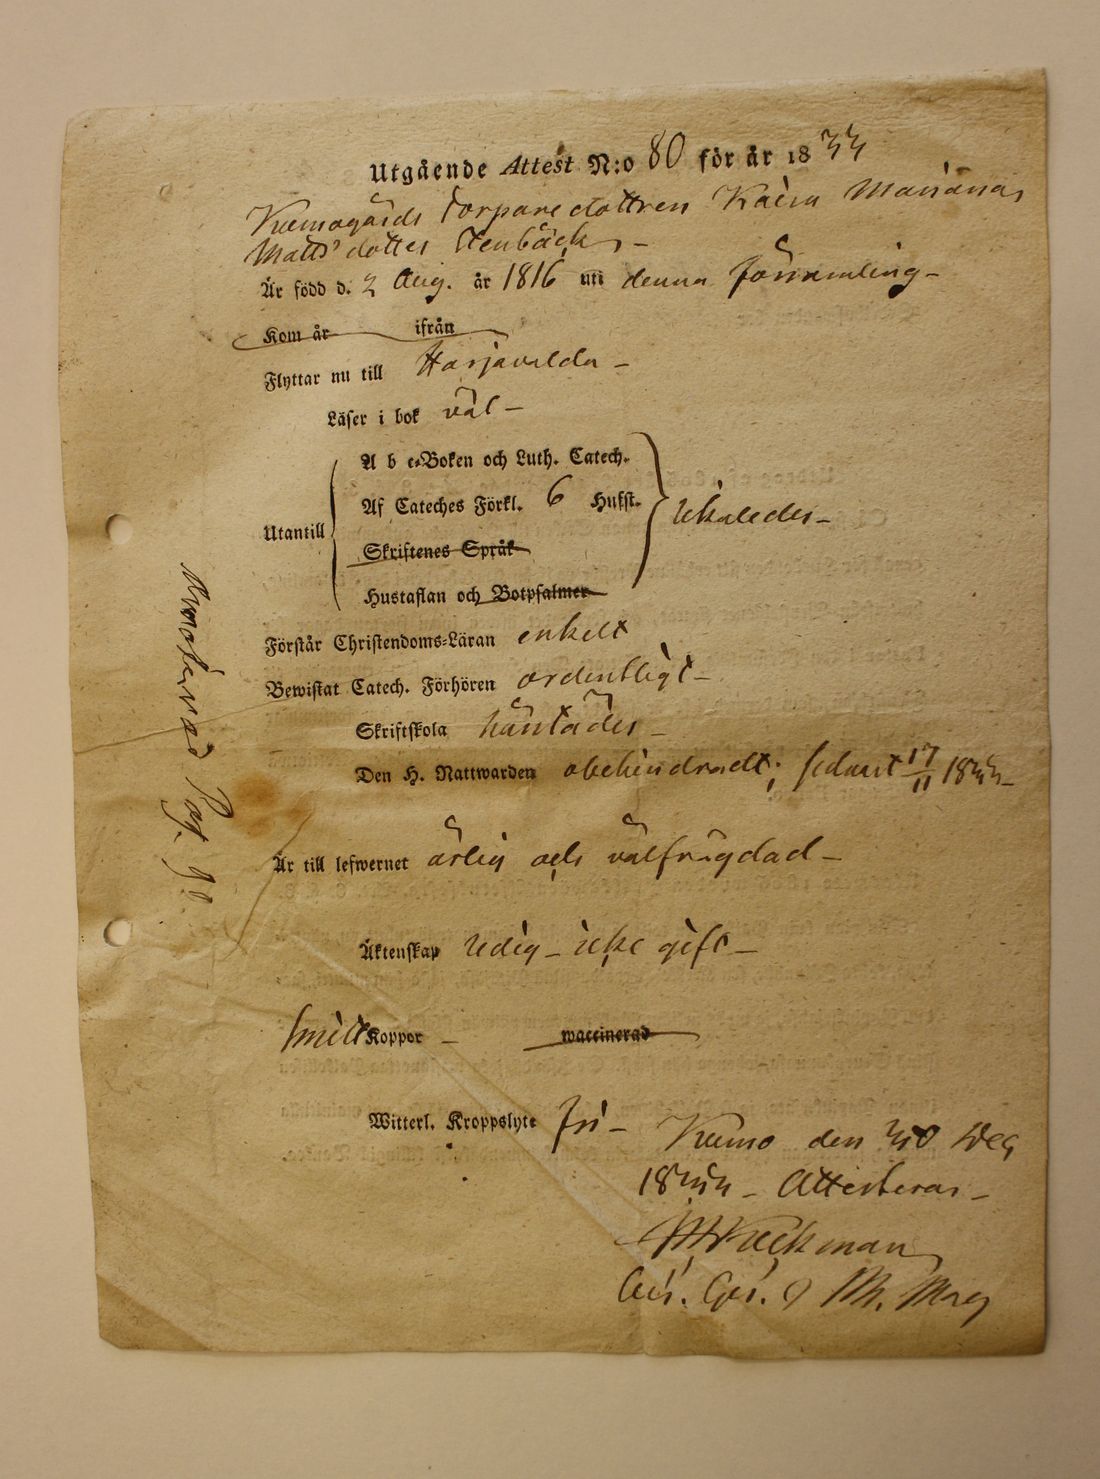 Utgående Attest N:o 80 för år 1833
Kumogårds Torpare dottren Kaisa Mariana
Matts dotter Stenbäck –
Är född d. 2 Aug. år 1816 uti denna församling –
Kom år ifrån
Flyttar nu till Harjavalda –
Läser i bok väl –
A b c-Boken och Luth. Catech.
Af Cateches Förkl. 6 Hufst.
likaledes –
Utantill
Skriftenes Språk
Hustaflan och Botpsalmer
Förstår Christendoms-Läran enkelt
Bewistat Catech. Förhören ordentligt –
Skriftskola
Den H. Nattwarden obehindradt; sednast 17/11 1833 –
Är till lefwernet ärlig och välfrägdad –
Äktenskap ledig – icke gift –
Koppor – waccinerad
Witterl. Kroppslyte fri –
Kumo den 30 Dec
1833 – Attesterar –
Noterad Pag. 90